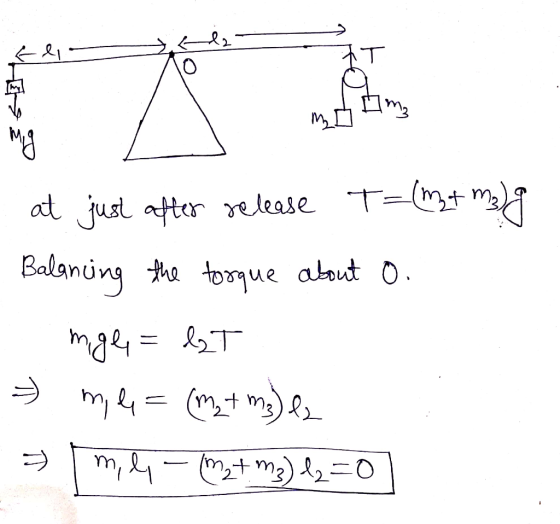 l₁ l₂
O T
m₁
m₁g m₂ m₃
at just after release T=(m₂+m₃)g
Balancing the torque about O.
m₁gl₁ = l₂T
⇒ m₁l₁ = (m₂+m₃)l₂
⇒ m₁l₁ − (m₂+m₃)l₂=0